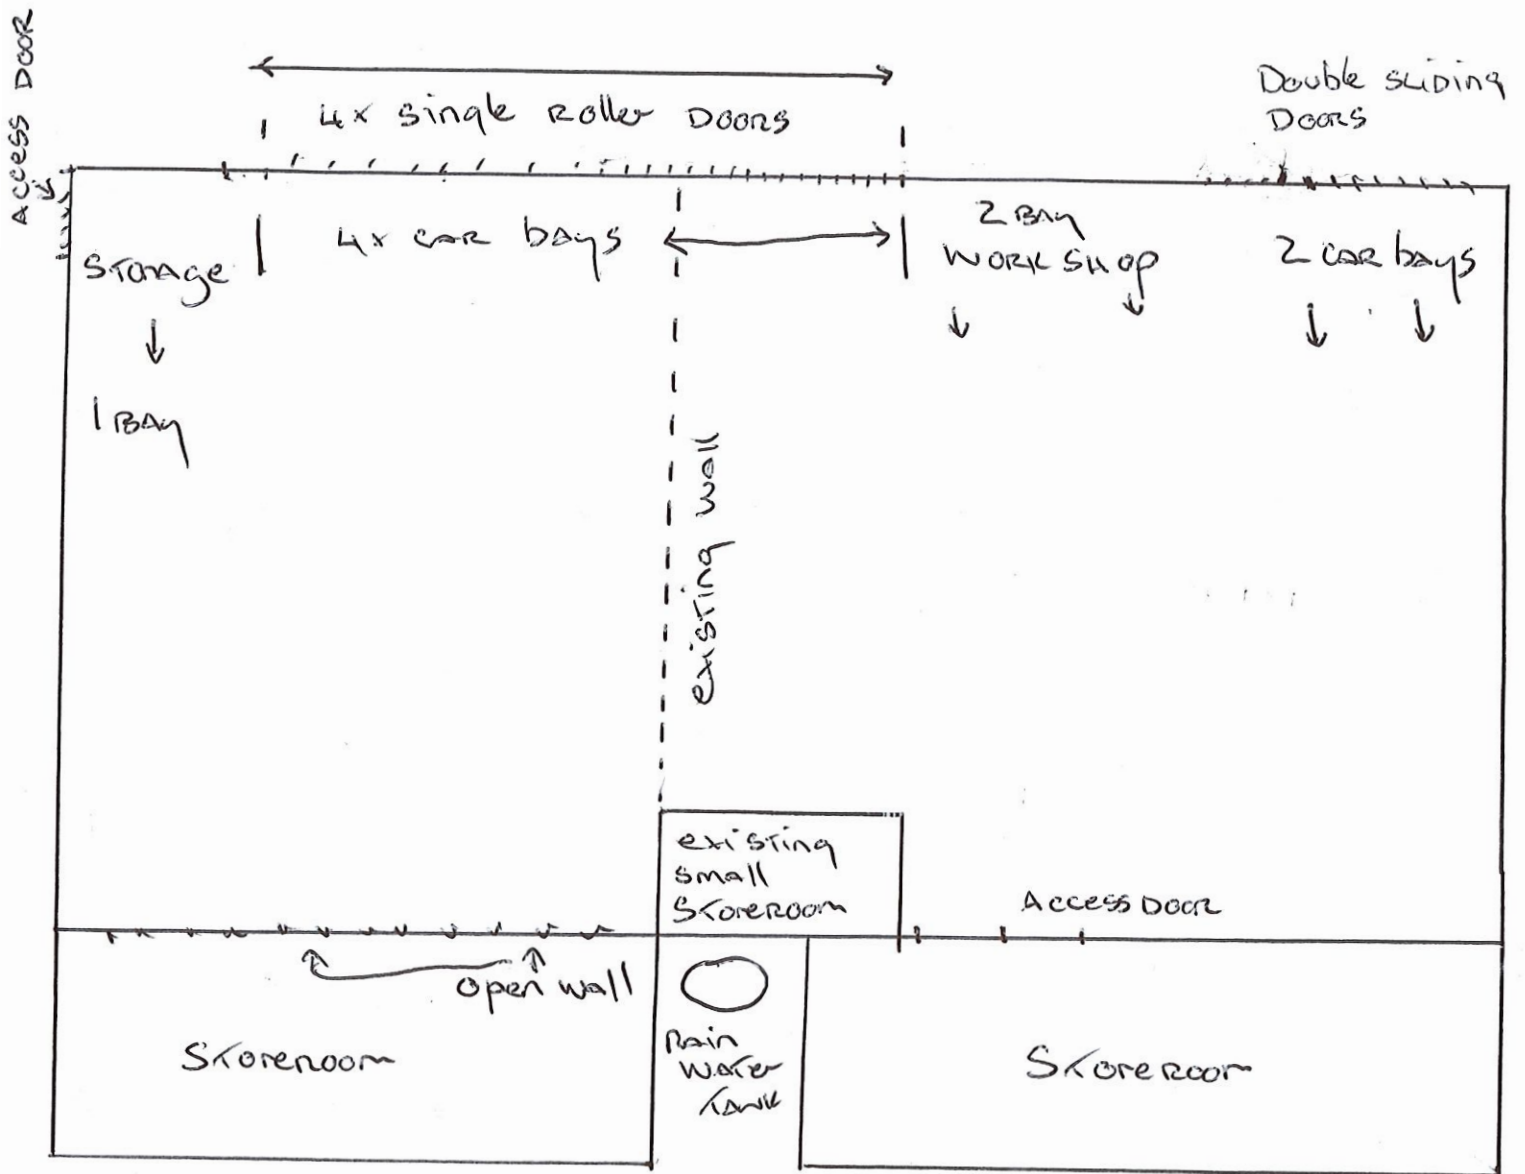 ACCESS DOOR
4x single Roller DOORS
Double SLIDING
DOORS
Storage
4x CAR bays
2 BAY
WORK SHOP
2 CAR bays
1 BAY
existing wall
existing
small
Storeroom
ACCESS DOOR
open wall
Storeroom
Rain
Water
Tank
Storeroom